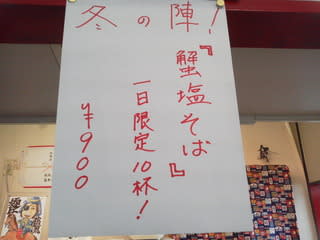 冬の陣!
『蟹塩そば』
一日限定10杯!
¥900